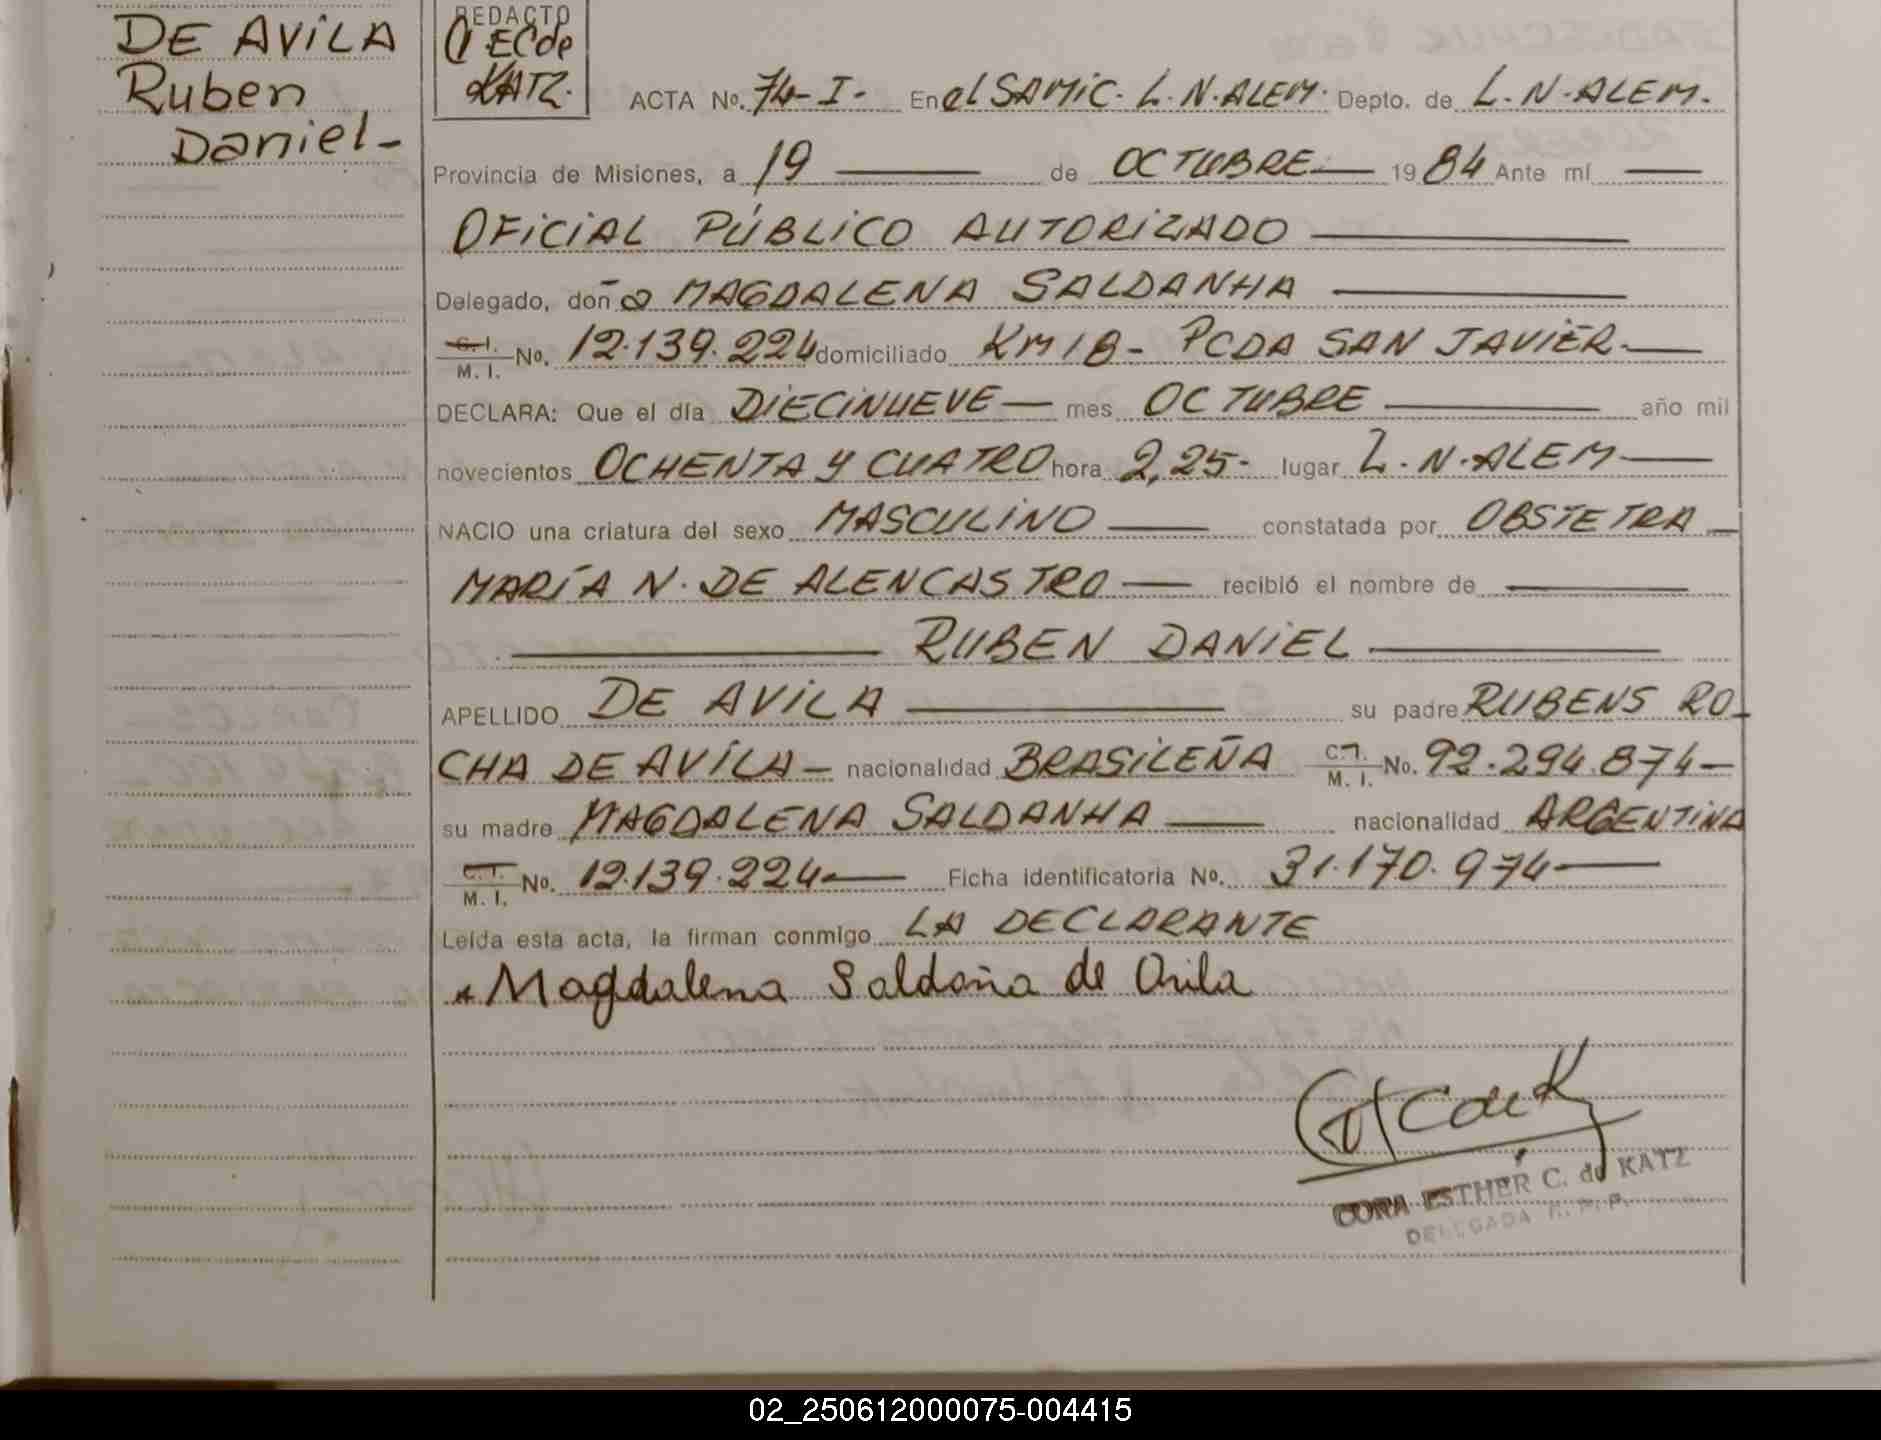 DE AVILA
Ruben
Daniel-
REDACTO
ECde
KATZ.
ACTA No. 74-I- En el SAMIC. L.N.ALEM. Depto. de L.N.ALEM.
Provincia de Misiones, a 19 — de OCTUBRE — 1984 Ante mí —
OFICIAL PÚBLICO AUTORIZADO —
Delegado, doña MAGDALENA SALDANHA —
C. I. M. I. No. 12.139.224 domiciliado KM 18 - PCDA SAN JAVIER. —
DECLARA: Que el día DIECINUEVE — mes OCTUBRE — año mil
novecientos OCHENTA Y CUATRO hora 2,25- lugar L.N.ALEM —
NACIO una criatura del sexo MASCULINO — constatada por OBSTETRA —
MARÍA N. DE ALENCASTRO — recibió el nombre de —
— RUBEN DANIEL —
APELLIDO DE AVILA — su padre RUBENS RO-
CHA DE AVÍLA — nacionalidad BRASILEÑA C.I. M. I. No. 92.294.874 —
su madre MAGDALENA SALDANHA — nacionalidad ARGENTINA
C. I. M. I. No. 12.139.224 — Ficha identificatoria No. 31.170.974 —
Leída esta acta, la firman conmigo LA DECLARANTE
Magdalena Saldaña de Avila
CORA ESTHER C. de KATZ
DELEGADA R. P. P.
02_250612000075-004415